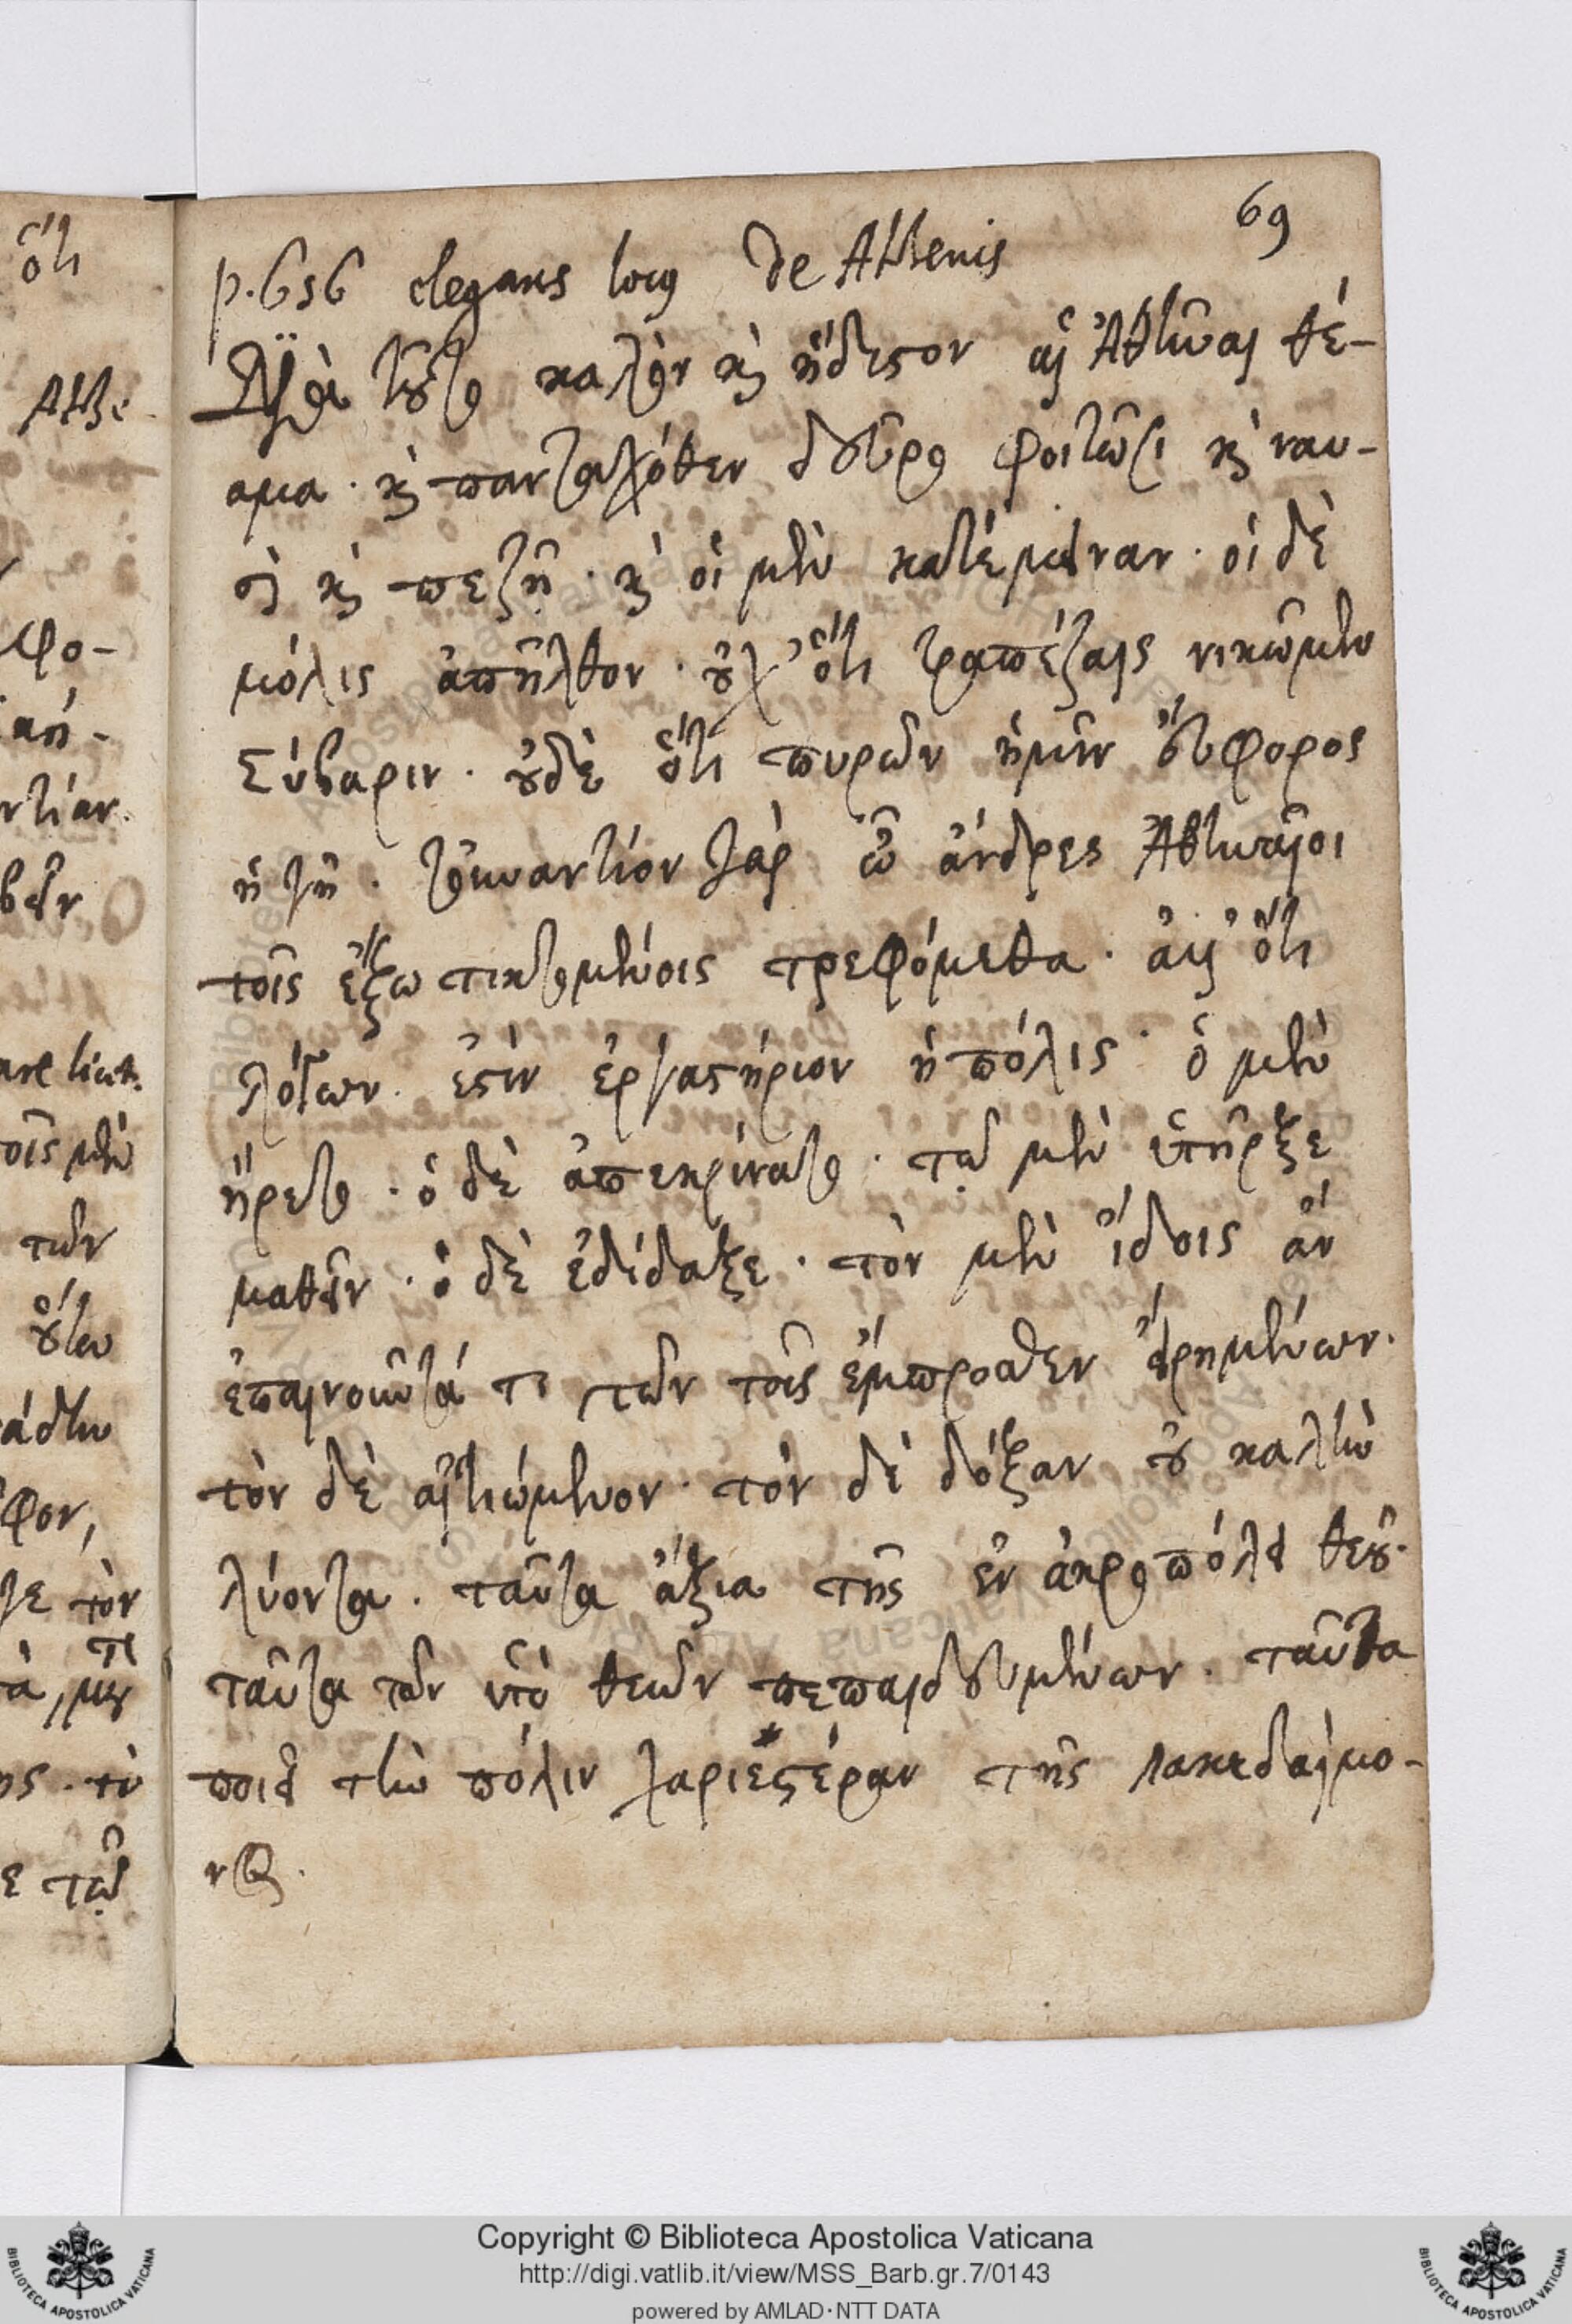 69
p. 656 elegans locus de Athenis
Διὰ τοῦτο καλὸν καὶ ἥδιστον αἱ Ἀθῆναι θέ-
αμα· καὶ πανταχόθεν δεῦρο φοιτῶσι καὶ ναυ-
σὶ καὶ πεζῇ· καὶ οἱ μὲν κατέμειναν· οἱ δὲ
μόλις ἀπῆλθον· οὐχ ὅτι τραπέζαις νικῶμεν
Σύβαριν· οὐδὲ ὅτι πυρῶν ἡμῖν εὔφορος
ἡ γῆ· τοὐναντίον γὰρ ὦ ἄνδρες Ἀθηναῖοι
τοῖς ἔξω τικτομένοις τρεφόμεθα· ἀλλ' ὅτι
λόγων ἐστὶν ἐργαστήριον ἡ πόλις· ὁ μὲν
ἤρετο· ὁ δὲ ἀπεκρίνατο· τῷ μὲν ὑπῆρξε
μαθεῖν· ὁ δὲ ἐδίδαξε· τὸν μὲν ἴδοις ἂν
ἐπαινοῦντά τι τῶν τοῖς ἔμπροσθεν εἰρημένων·
τὸν δὲ αἰτιώμενον· τὸν δὲ δόξαν οὐ καλὴν
λύοντα· ταῦτα ἄξια τῆς ἐν ἀκροπόλει θεοῦ·
ταῦτα τῶν ὑπὸ θεῶν πεπαιδευμένων· ταῦτα
ποιεῖ τὴν πόλιν χαριεστέραν τῆς Λακεδαίμο-
νος.
Copyright © Biblioteca Apostolica Vaticana
http://digi.vatlib.it/view/MSS_Barb.gr.7/0143
powered by AMLAD·NTT DATA
BIBLIOTECA APOSTOLICA VATICANA
BIBLIOTECA APOSTOLICA VATICANA